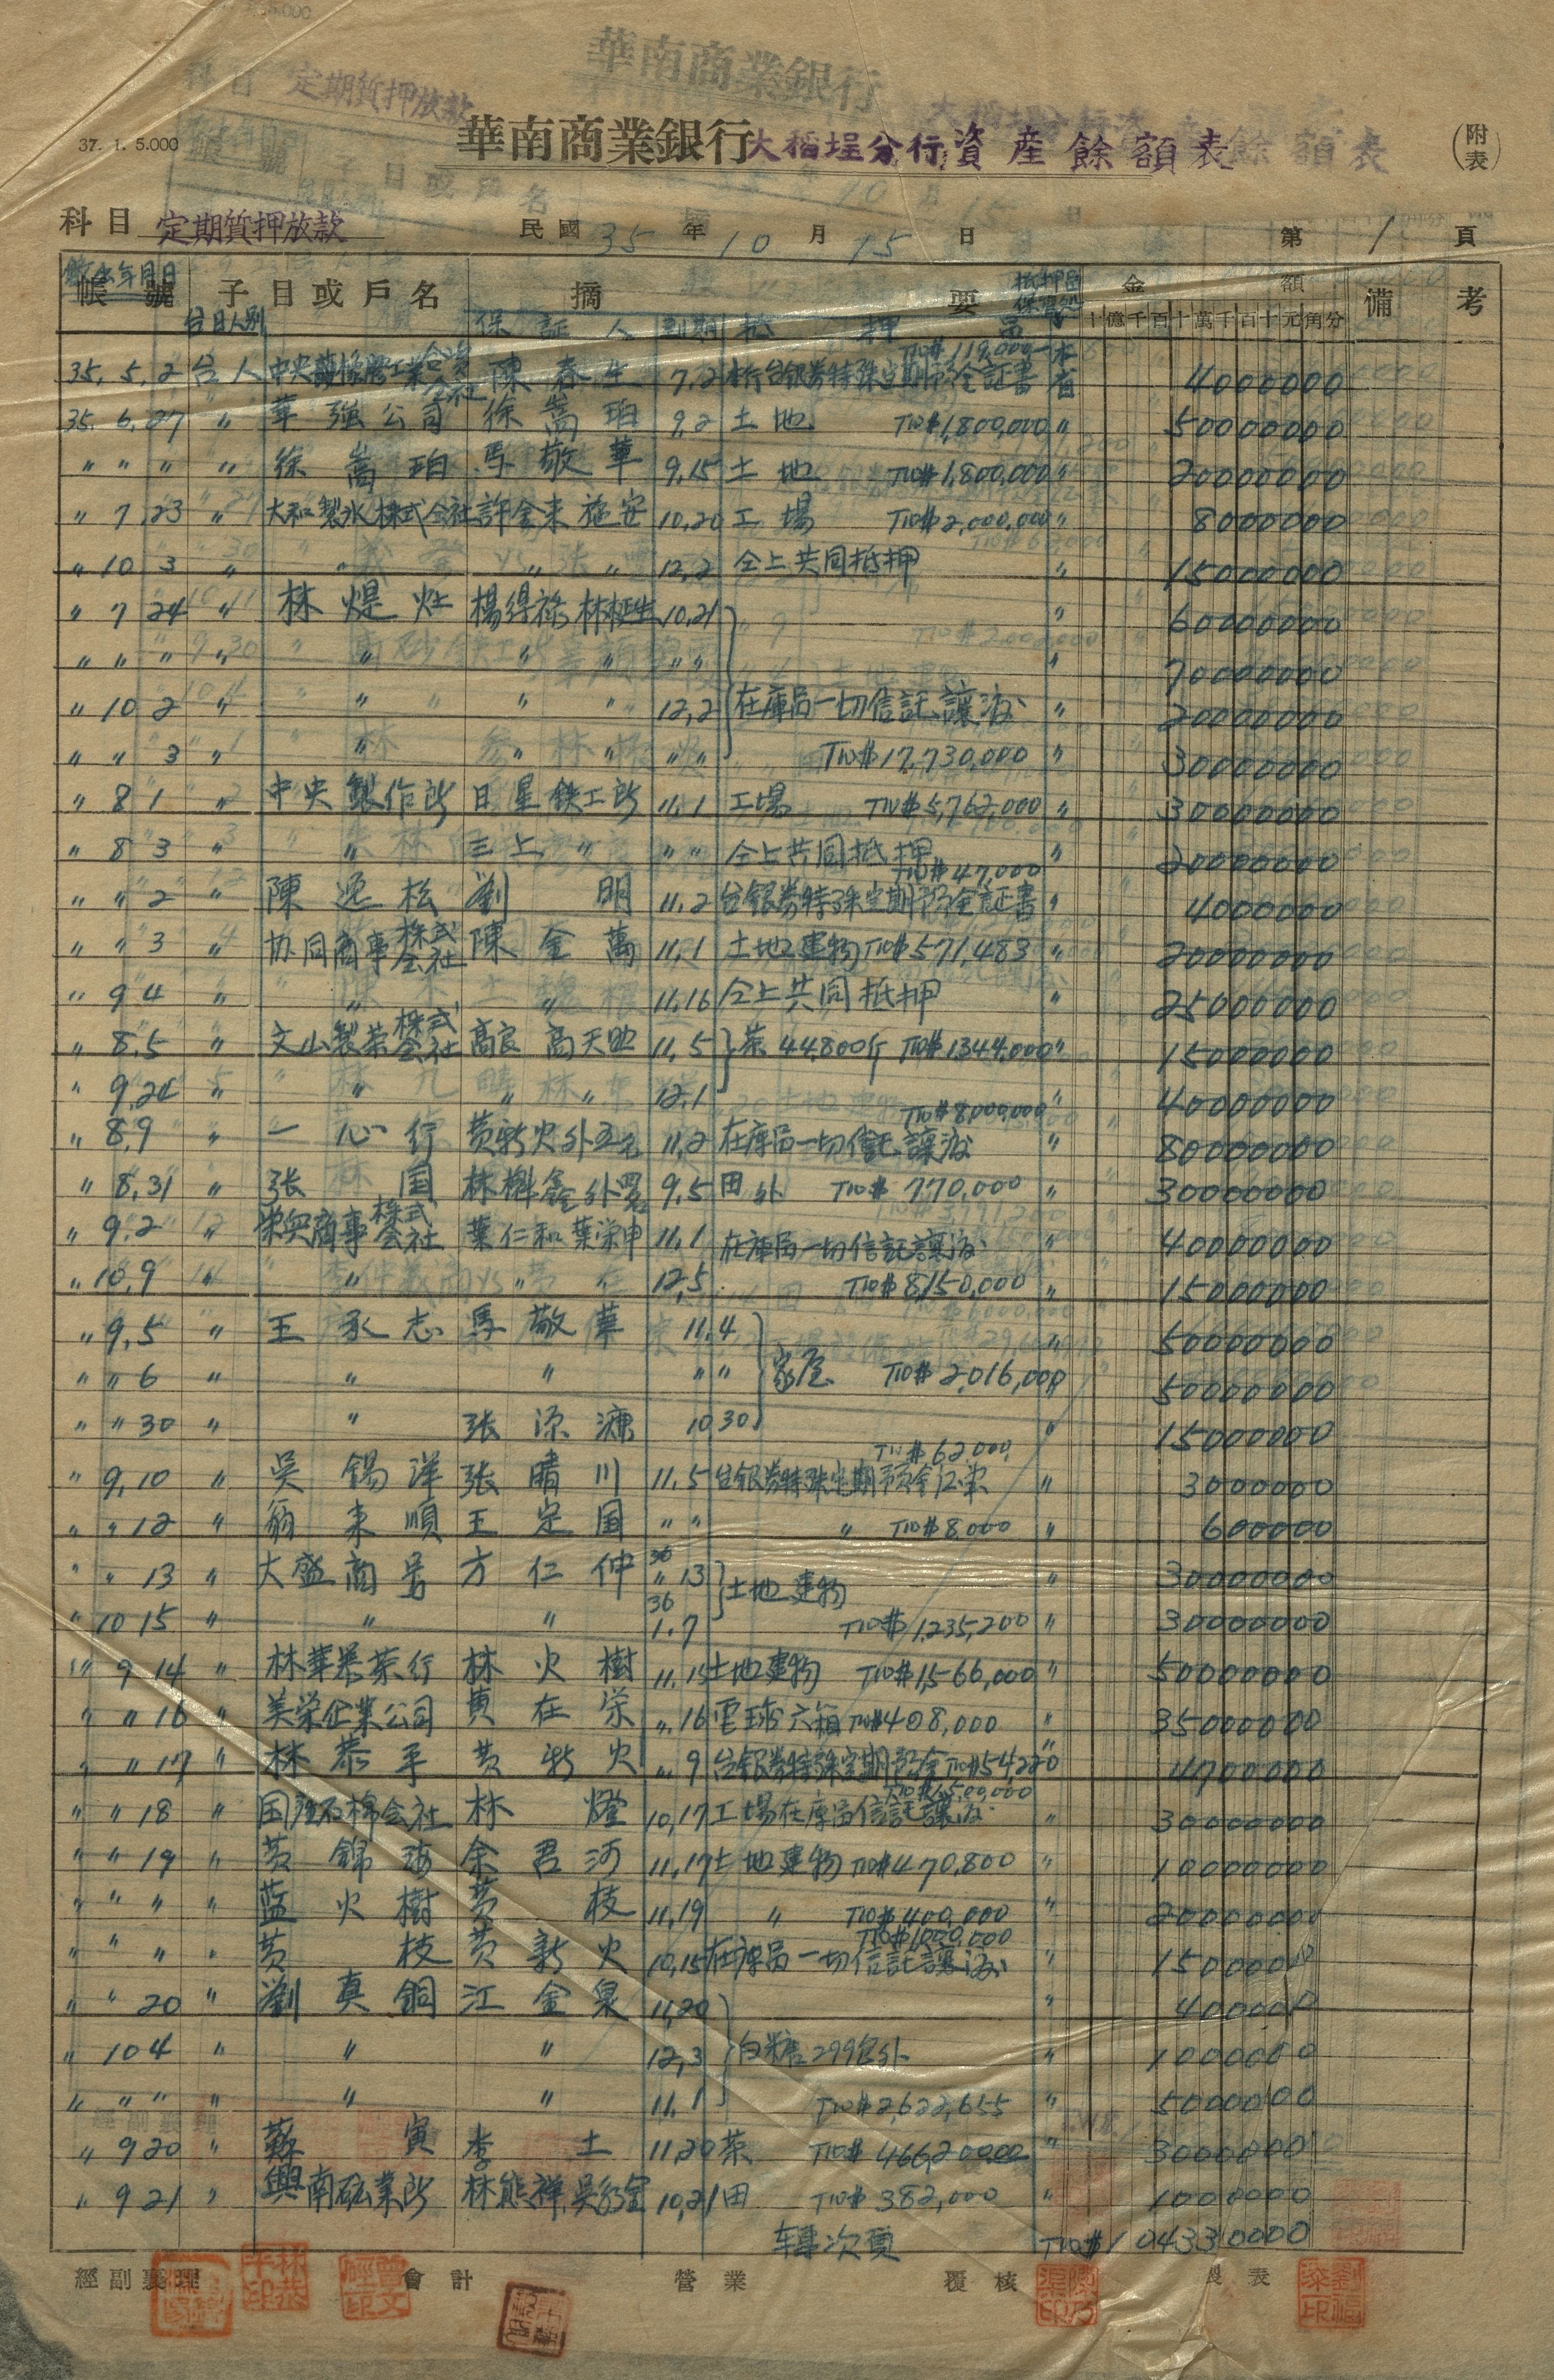 37. 1. 5.000
華南商業銀行大稻埕分行資產餘額表
(附表)
科目 定期質押放款 民國 35 年 10 月 15 日 第 1 頁
帳號 子目或戶名 摘要 金額 備考
台日人別 保証人 到期 抵押品 十億千百十萬千百十元角分
TW$119,000 本
35. 5. 2 台人 陳春生 7,2 台銀券特殊定期預金証書 省 4000000
35. 6. 27 〃 華強公司 徐嵩珀 9,2 土地 TW$1,800,000 〃 50000000
〃 〃 〃 〃 徐嵩珀 馬敬華 9,15 土地 TW$1,800,000 〃 20000000
〃 7 23 〃 大和製氷株式会社 許金来 施安 10,20 工場 TW$2,000,000 〃 8000000
〃 10 3 〃 〃 〃 〃 12,2 仝上共同抵押 〃 15000000
〃 7 24 〃 林煶灶 楊得祿 10,21 〃 60000000
〃 〃 〃 〃 〃 〃 〃 〃 〃 70000000
〃 10 2 〃 〃 〃 〃 12,2 在庫品一切信託讓渡 〃 20000000
〃 〃 3 〃 〃 〃 〃 〃 〃 TW$17,730,000 〃 30000000
〃 8 1 〃 中央製作所 日星鉄工所 11,1 工場 TW$5,762,000 〃 30000000
〃 8 3 〃 〃 仝上 〃 〃 〃 仝上共同抵押 〃 20000000
TW$47,000
〃 〃 2 〃 陳逸松 劉明 11,2 台銀券特殊定期預金証書 〃 4000000
〃 〃 3 〃 協同商事株式会社 陳金萬 11,1 土地建物 TW$571,483 〃 20000000
〃 9 4 〃 〃 〃 11,16 仝上共同抵押 〃 25000000
〃 8,5 〃 文山製茶株式会社 高良 高天助 11,5 茶 44,800斤 TW$1344,000 〃 15000000
〃 9,24 〃 〃 〃 〃 12,1 〃 40000000
TW$8,000,000
〃 8,9 〃 一心行 黄新火外五名 11,2 在庫品一切信託讓渡 〃 80000000
〃 8,31 〃 张国 9,5 田外 TW$770,000 〃 30000000
〃 9,2 〃 栄興商事株式会社 葉仁和 葉栄申 11,1 在庫品一切信託讓渡 〃 40000000
〃 10,9 〃 〃 〃 〃 12,5 TW$8,150,000 〃 15000000
〃 9,5 〃 王承志 馬敬華 11,4 〃 50000000
〃 〃 6 〃 〃 〃 〃 〃 家屋 TW$2,016,000 〃 50000000
〃 〃 30 〃 〃 张深濂 10 30 〃 15000000
TW$62,000
〃 9,10 〃 吳錫洋 张晴川 11,5 台銀券特殊定期預金 〃 3000000
〃 〃 12 〃 翁来順 王定国 〃 〃 〃 TW$8,000 〃 600000
〃 〃 13 〃 大盛商号 方仁仲 36 〃 13 土地建物 〃 30000000
〃 10 15 〃 〃 〃 36 1.7 TW$1,235,200 〃 30000000
〃 9 14 〃 林華泰茶行 林火樹 11,15 土地建物 TW$1,566,000 〃 50000000
〃 〃 16 〃 美栄企業公司 黄在栄 〃,16 電球六箱 TW$408,000 〃 35000000
〃 〃 17 〃 林恭平 黄新火 〃,9 台銀券特殊定期預金 TW$54,220 〃 4700000
〃 〃 18 〃 石棉会社 林燈 10,17 工場在庫品信託讓渡 〃 30000000
〃 〃 19 〃 黄錦海 余君河 11,17 土地建物 TW$470,800 〃 10000000
〃 〃 〃 〃 藍火樹 黄枝 11,19 〃 TW$400,000 〃 20000000
TW$1,000,000
〃 〃 〃 〃 黄枝 黄新火 10,15 在庫品一切信託讓渡 〃 1500000
〃 〃 20 〃 劉真銅 江金泉 11,20 〃 400000
〃 10 4 〃 〃 〃 12,3 白糖299包外 〃 1000000
〃 〃 〃 〃 〃 〃 11,1 TW$2,622,655 〃 5000000
〃 9 20 〃 蘇寅 李土 11,20 茶 TW$466,200.00 〃 3000000
〃 9 21 〃 興南砿業所 林熊祥 10,21 田 TW$382,000 〃 1000000
轉次頁 TW$1 04330000
經副襄理 會計 營業 覆核 製表